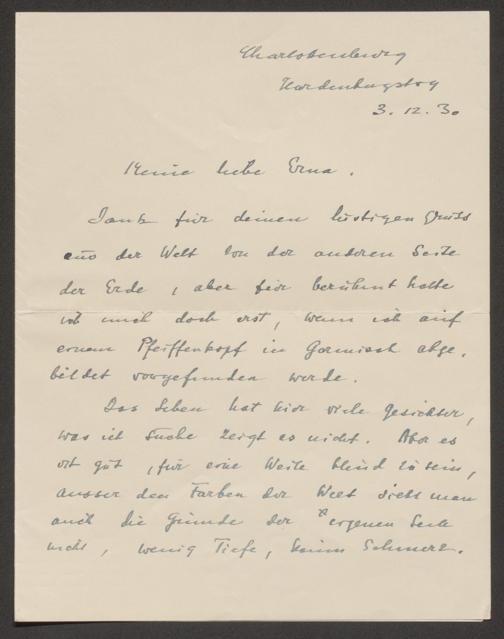 Charlottenburg
Hardenbergstr
3. 12. 30
Meine liebe Erna.
Dank für deinen lustigen Gruss
aus der Welt von der anderen Seite
der Erde, aber für berühmt halte
ich mich doch erst, wenn ich auf
einem Pfeiffenkopf in Garmisch abge-
bildet vorgefunden werde.
Das Leben hat hier viele Gesichter,
was ich suche zeigt es nicht. Aber es
ist gut, für eine Weile blind zu sein,
ausser den Farben der Welt sieht man
auch die Gründe der eigenen Seele
nicht, wenig Tiefe, keine Schmerz.